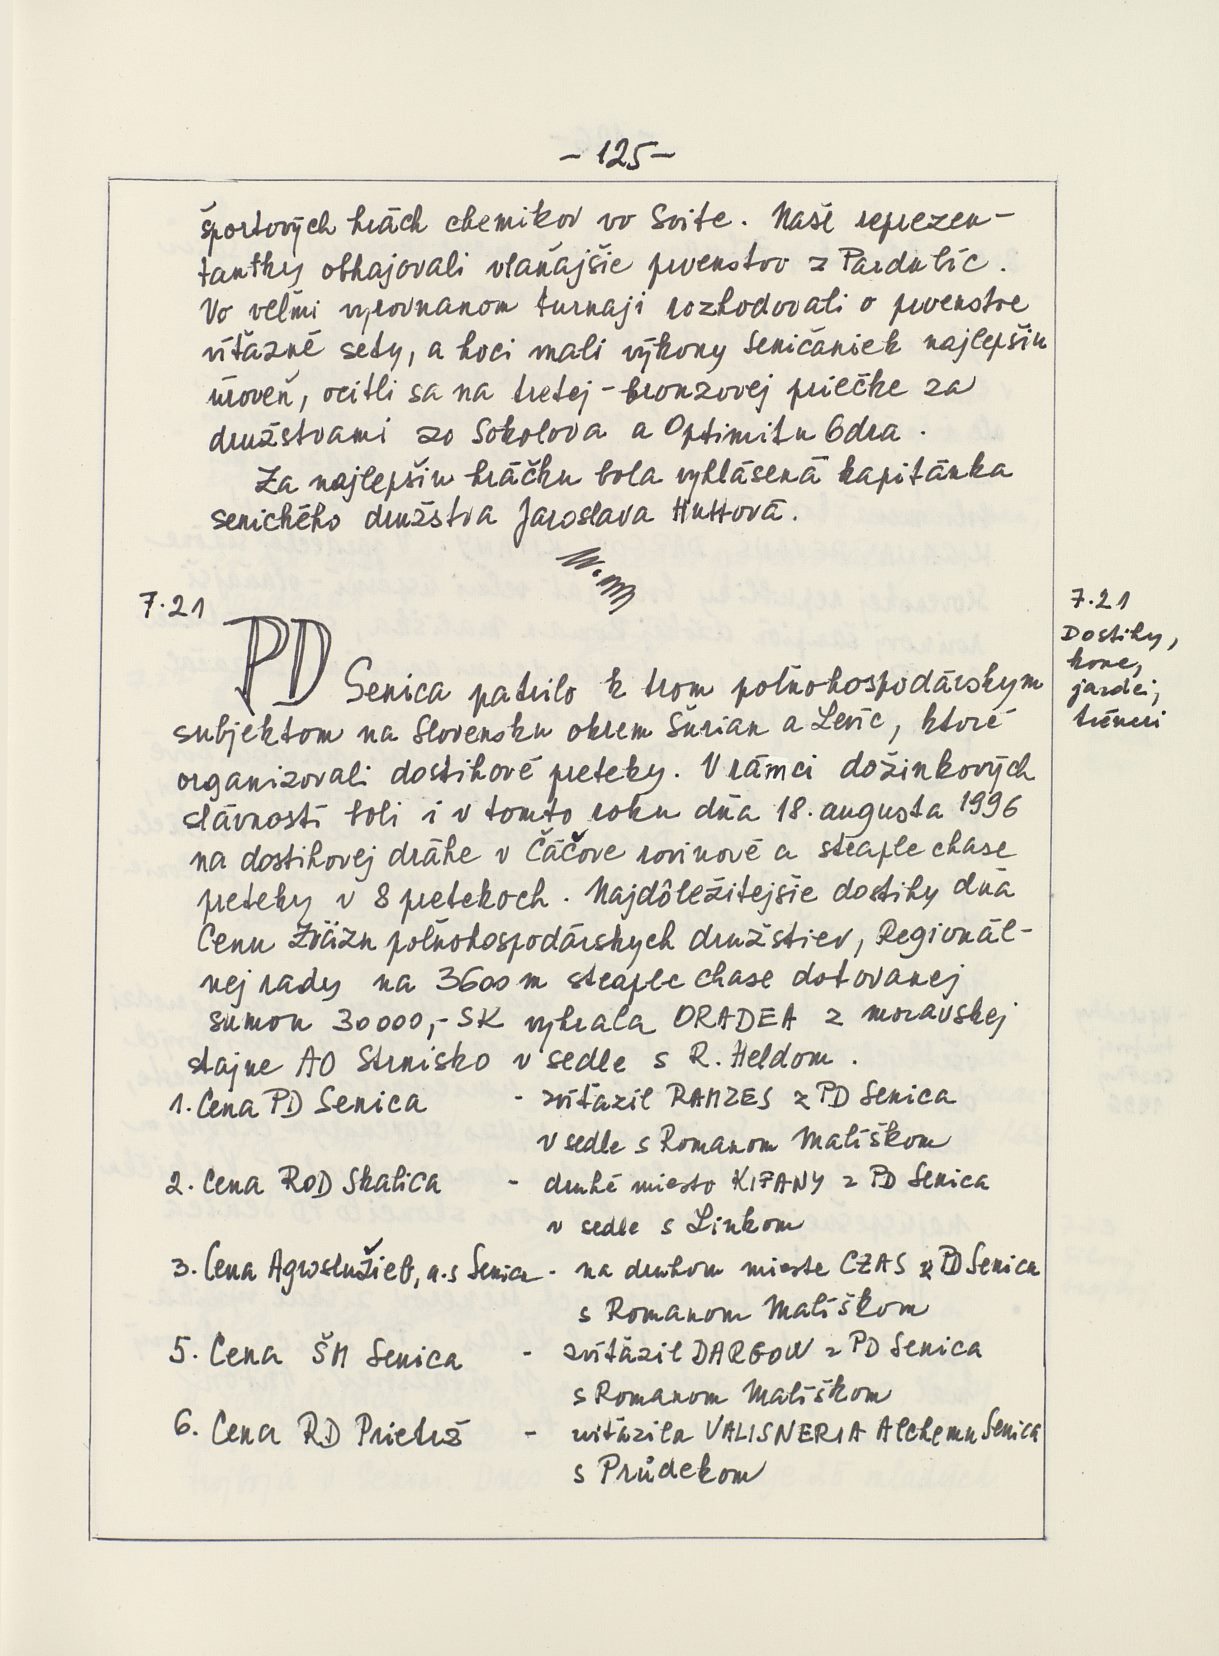 - 125 -
športových hrách chemikov vo Svite. Naše reprezen-
tantky obhajovali vlaňajšie prvenstvo z Pardubíc.
Vo veľmi vyrovnanom turnaji rozhodovali o prvenstve
víťazné sety, a hoci mali výkony Seničaniek najlepšiu
úroveň, ocitli sa na tretej - bronzovej priečke za
družstvami zo Sokolova a Optimitu Odra.
Za najlepšiu hráčku bola vyhlásená kapitánka
senického družstva Jaroslava Huttová.
7.21
PD Senica patrilo k trom poľnohospodárskym
subjektom na Slovensku okrem Šurian a Levíc, ktoré
organizovali dostihové preteky. V rámci dožinkových
slávností boli i v tomto roku dňa 18. augusta 1996
na dostihovej dráhe v Čáčove rovinové a steaple chase
preteky v 8 pretekoch. Najdôležitejšie dostihy dňa
Cenu Zväzu poľnohospodárskych družstiev, Regionál-
nej rady na 3600 m steaple chase dotovanej
sumou 30 000,- SK vyhrala ORADEA z moravskej
stajne AO Strnisko v sedle s R. Heldom.
1. Cena PD Senica - zvíťazil RAMZES z PD Senica
v sedle s Romanom Malíškom
2. Cena RoD Skalica - druhé miesto KIFANY z PD Senica
v sedle s Linkom
3. Cena Agroslužieb, a.s Senica - na druhom mieste CZAS z PD Senica
s Romanom Malíškom
5. Cena ŠM Senica - zvíťazil DARGOW z PD Senica
s Romanom Malíškom
6. Cena RD Prietrž - zvíťazila VALISNERIA Alchemu Senica
s Průdekom
7.21
Dostihy,
kone,
jazdci,
tréneri